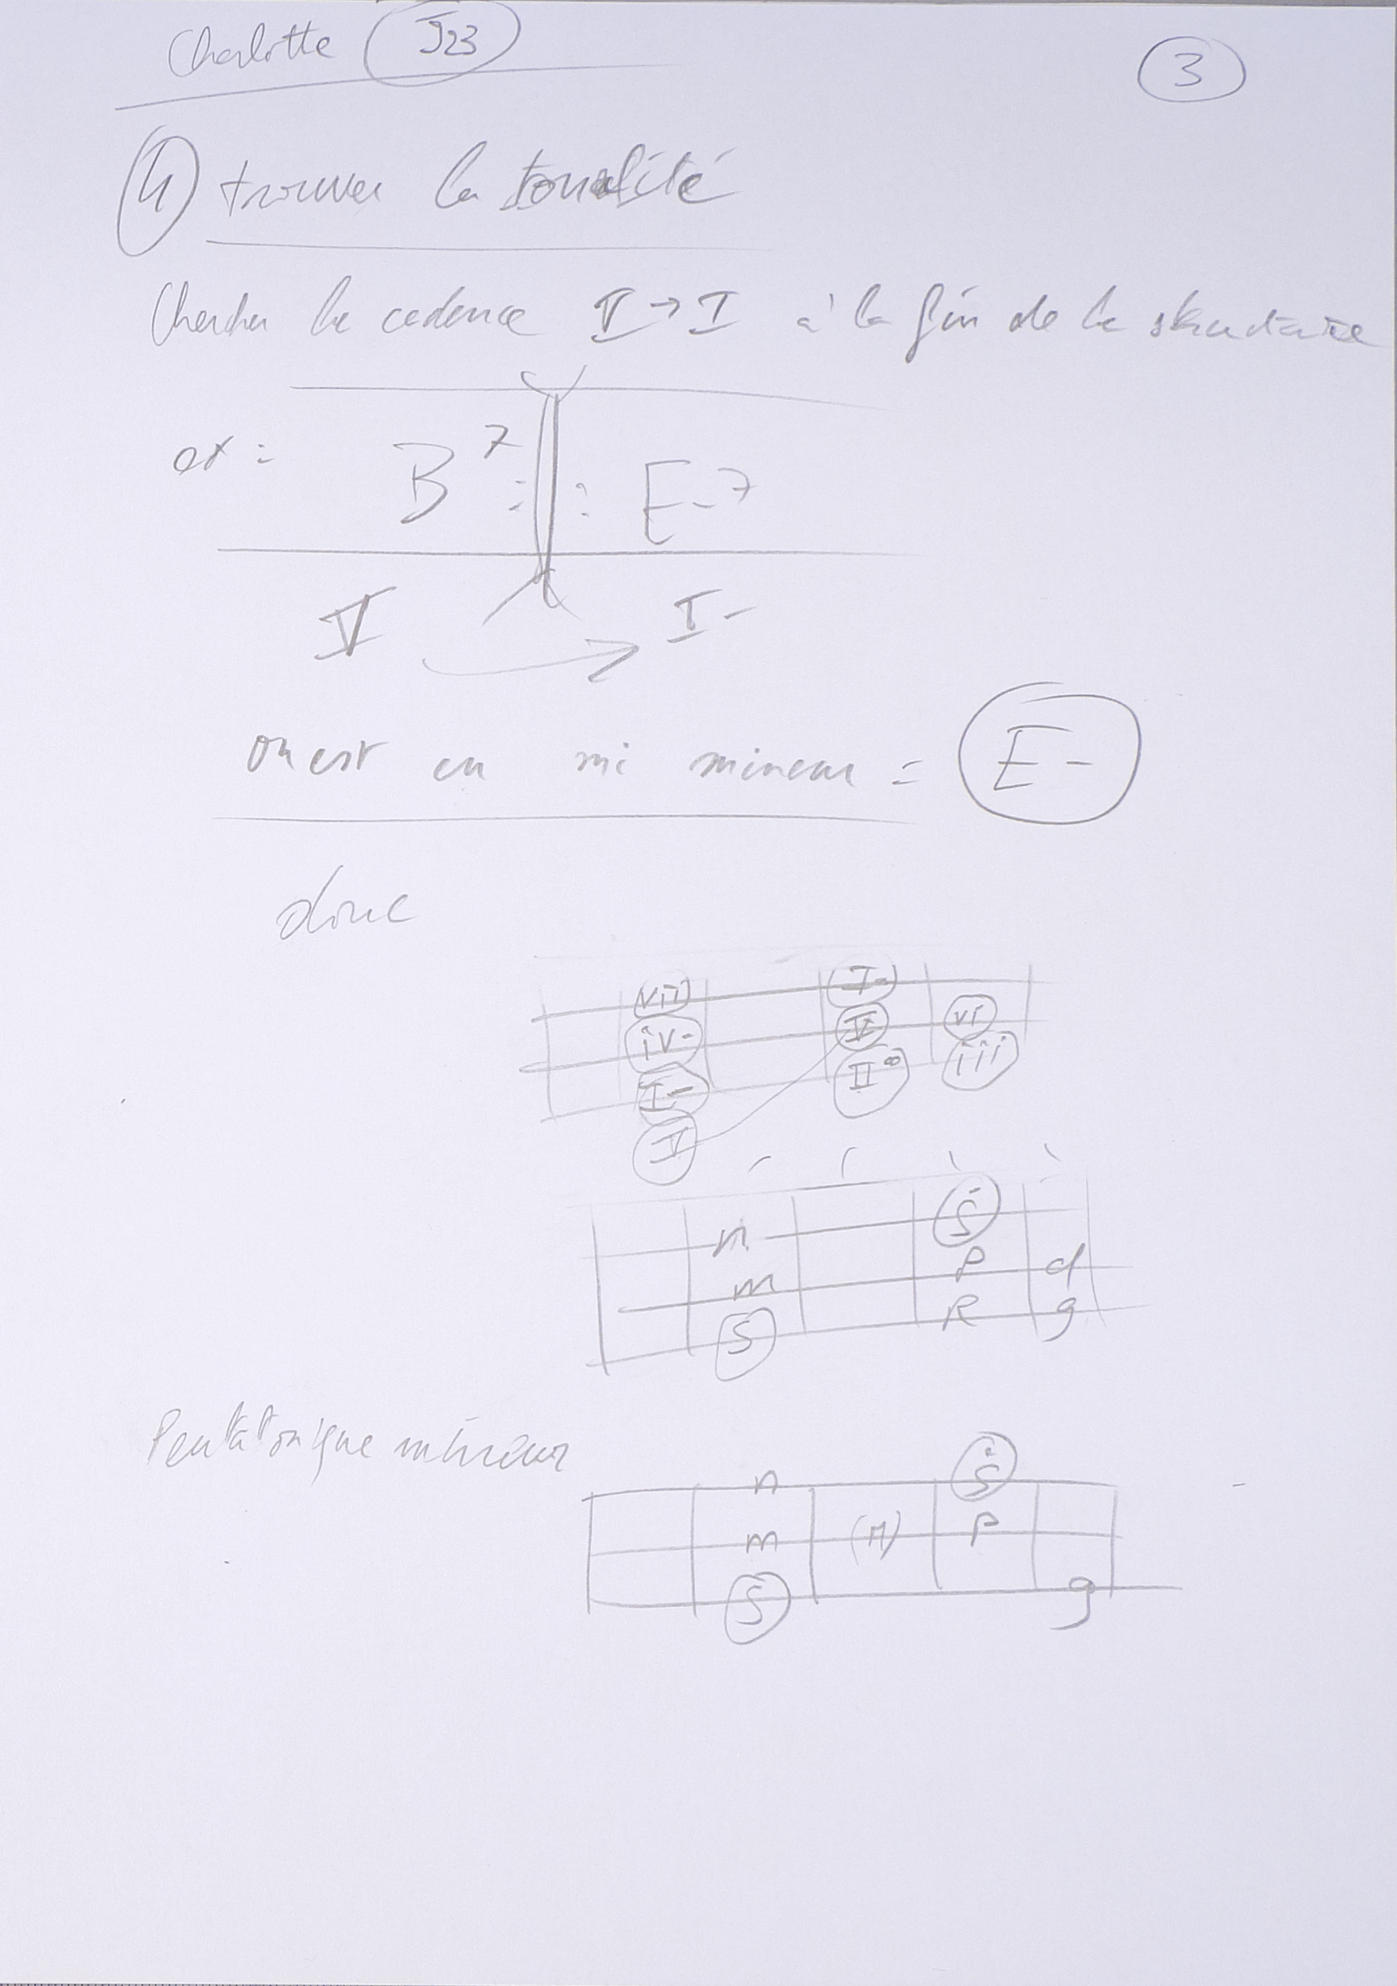 Charlotte J23
3
4 trouver la tonalité
Chercher la cadence V → I à la fin de la structure
ex : B7 : : E-7
V → I-
on est en mi mineur = E-
donc
vii I-
iv- V vi
I- II iii
V
n Ṡ
m P d
S R g
Pentatonique mineur
n Ṡ
m (M) P
S g